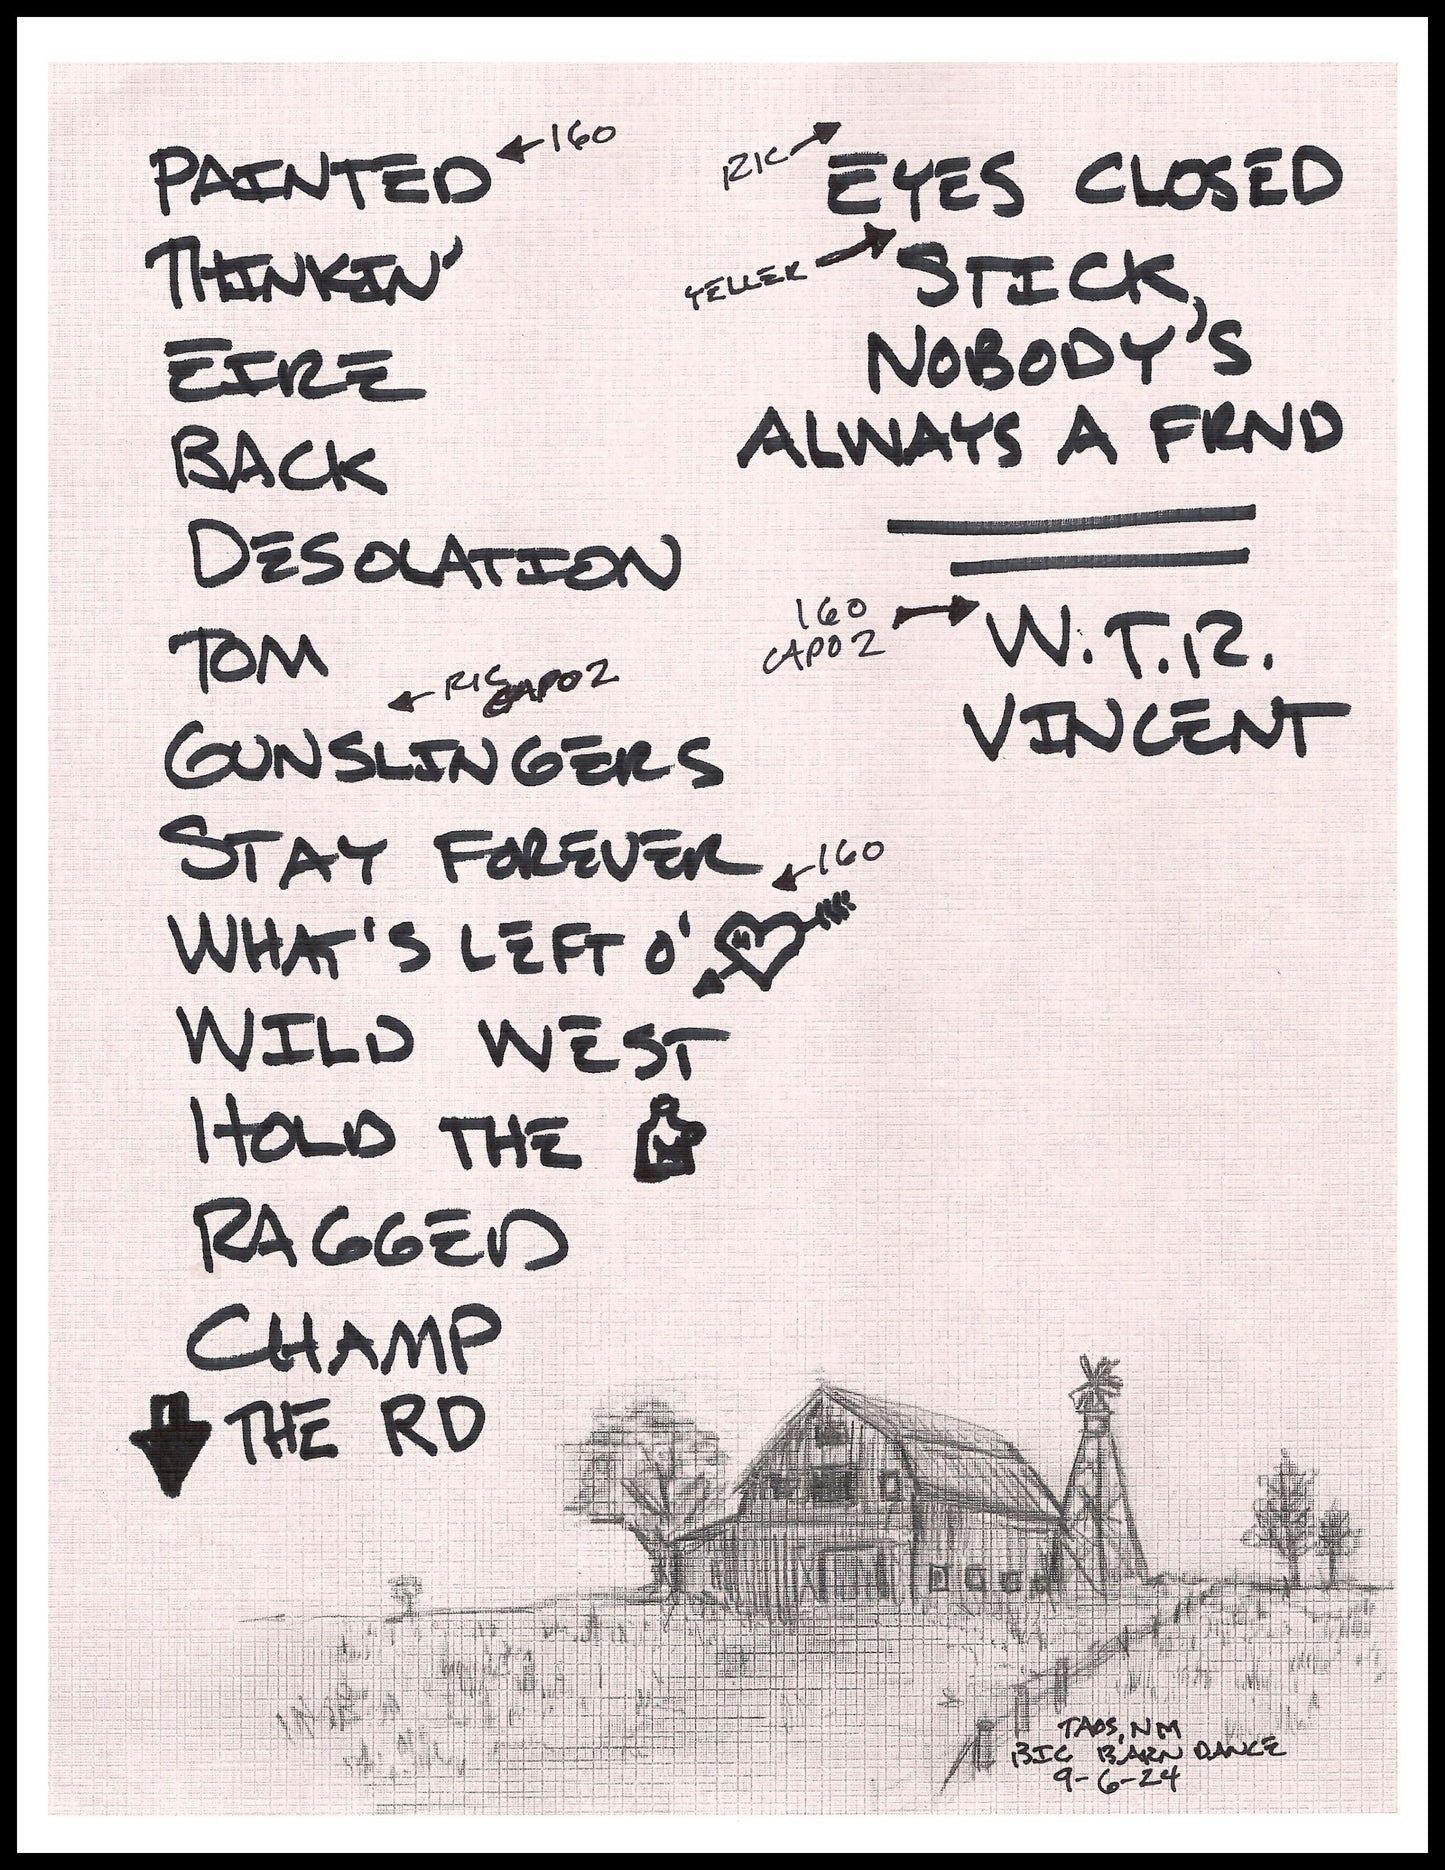 PAINTED ←160
THINKIN'
EIRE
BACK
DESOLATION
TOM
← RIC CAPO 2
GUNSLINGERS
STAY FOREVER
←160
WHAT'S LEFT O'
WILD WEST
HOLD THE
RAGGED
CHAMP
THE RD
RIC
EYES CLOSED
YELLER
STICK,
NOBODY'S
ALWAYS A FRND
160
CAPO 2
W.T.R.
VINCENT
TAOS, NM
BIG BARN DANCE
9-6-24